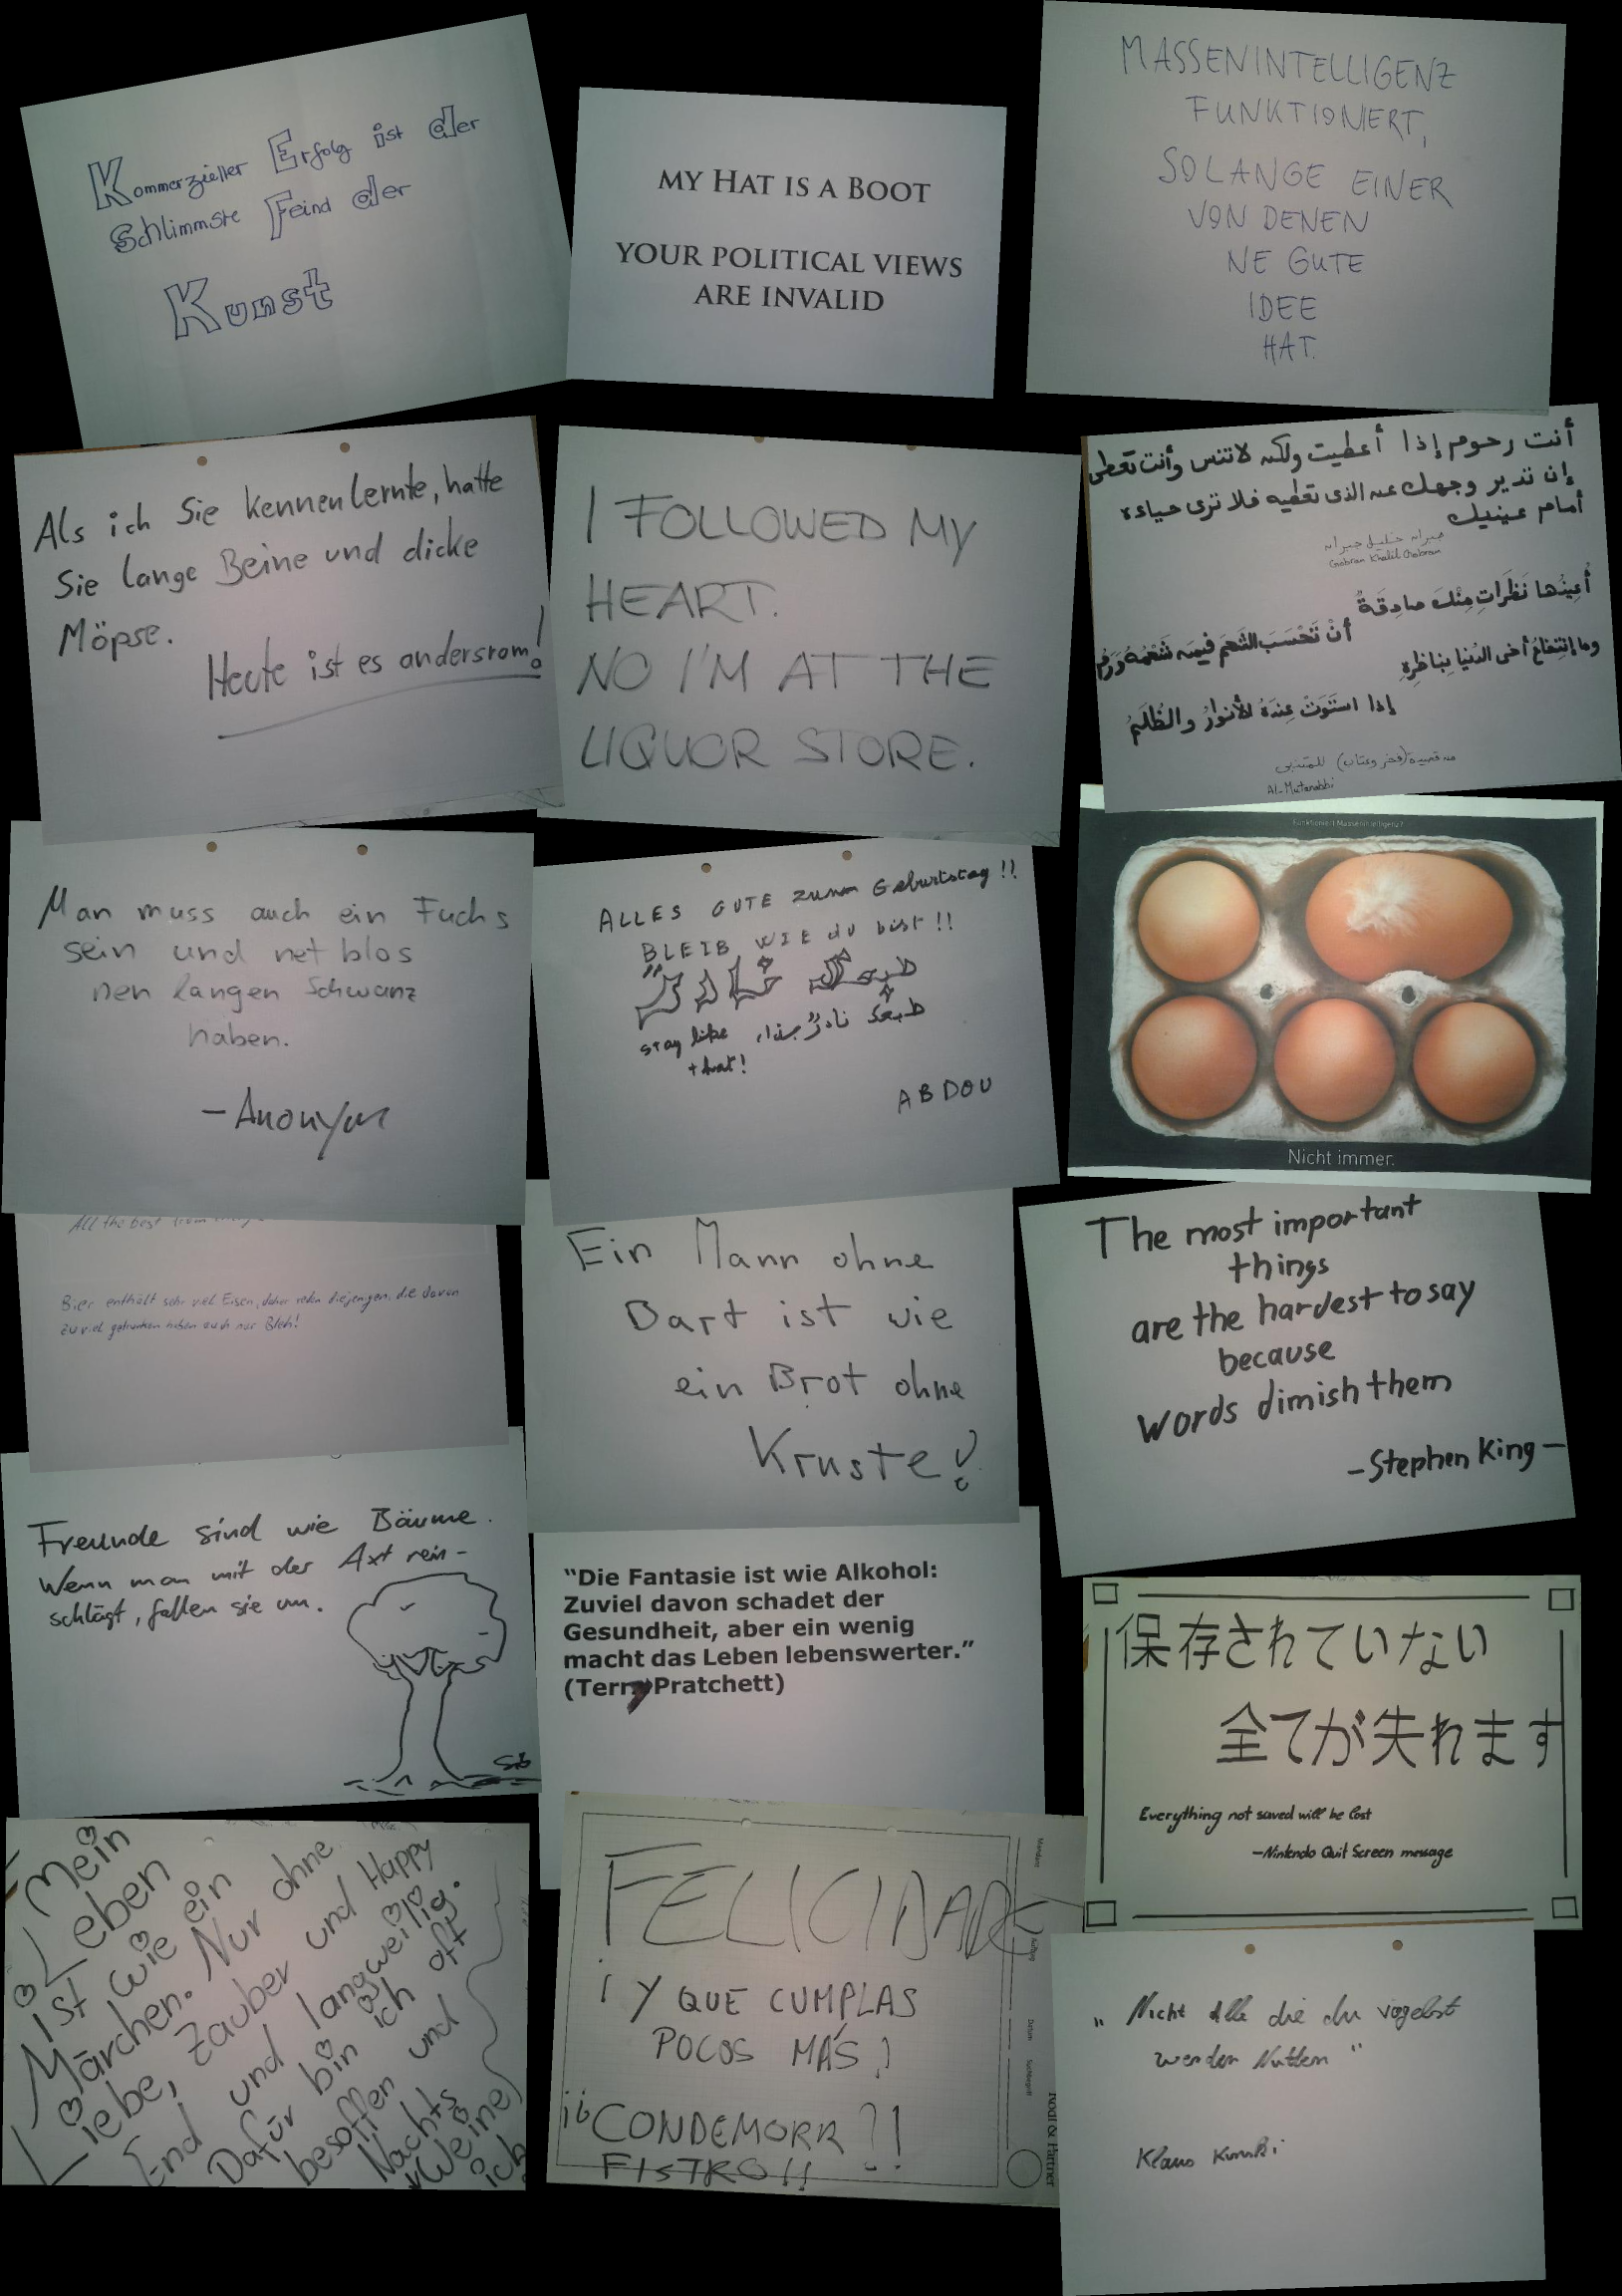 Kommerzieller Erfolg ist der
Schlimmste Feind der
Kunst
MY HAT IS A BOOT
YOUR POLITICAL VIEWS
ARE INVALID
MASSENINTELLIGENZ
FUNKTIONIERT,
SOLANGE EINER
VON DENEN
NE GUTE
IDEE
HAT.
Als ich Sie kennenlernte, hatte
Sie lange Beine und dicke
Möpse.
Heute ist es andersrom!
I FOLLOWED MY
HEART.
NO I'M AT THE
LIQUOR STORE.
أنت رحوم إذا أعطيت ولكن لا تنس وأنت تعطى
إن تدير وجهك عن الذى تعطيه فلا ترى حياءه
أمام عينيك
جبران خليل جبران
Gobran Khalil Gobran
أُعِيذُها نَظَرَاتٍ مِنْكَ صادِقَةً
أنْ تَحْسَبَ الشَّحمَ فيمن شَحْمُهُ وَرَمُ
وما إنتِفاعُ أخى الدُنيا بِناظرِهِ
إذا استَوَتْ عِندَهُ الأنوارُ والظُلَمُ
من قصيدة (فخر وعتاب) للمتنبى
Al-Mutanabbi
Man muss auch ein Fuchs
sein und net blos
nen langen Schwanz
haben.
- Anonym
ALLES GUTE zum Geburtstag!!
BLEIB WIE dU bist!!
stay like
that!
ABDOU
Funktioniert Massenintelligenz?
Nicht immer.
All the best from
Bier enthält sehr viel Eisen, daher reden diejenigen, die davon
zuviel getrunken haben auch nur Bleh!
Ein Mann ohne
Bart ist wie
ein Brot ohne
Kruste!
The most important
things
are the hardest to say
because
words dimish them
-Stephen King-
Freunde sind wie Bäume.
Wenn man mit der Axt rein-
schlägt, fallen sie um.
Sib
"Die Fantasie ist wie Alkohol:
Zuviel davon schadet der
Gesundheit, aber ein wenig
macht das Leben lebenswerter."
(Terry Pratchett)
保存されていない
全てが失れます
Everything not saved will be lost
-Nintendo Quit Screen message
Mein
Leben
ist wie ein
Märchen. Nur ohne
Liebe, Zauber und Happy
End und langweilig.
Dafür bin ich oft
besoffen und
Nachts
weine
ich
FELICIDADES
¡Y QUE CUMPLAS
POCOS MÁS!
¡¿CONDEMORR?!
FISTRO!!
"Nicht Alle die du vögelst
werden Nutten"
Klaus Kinski